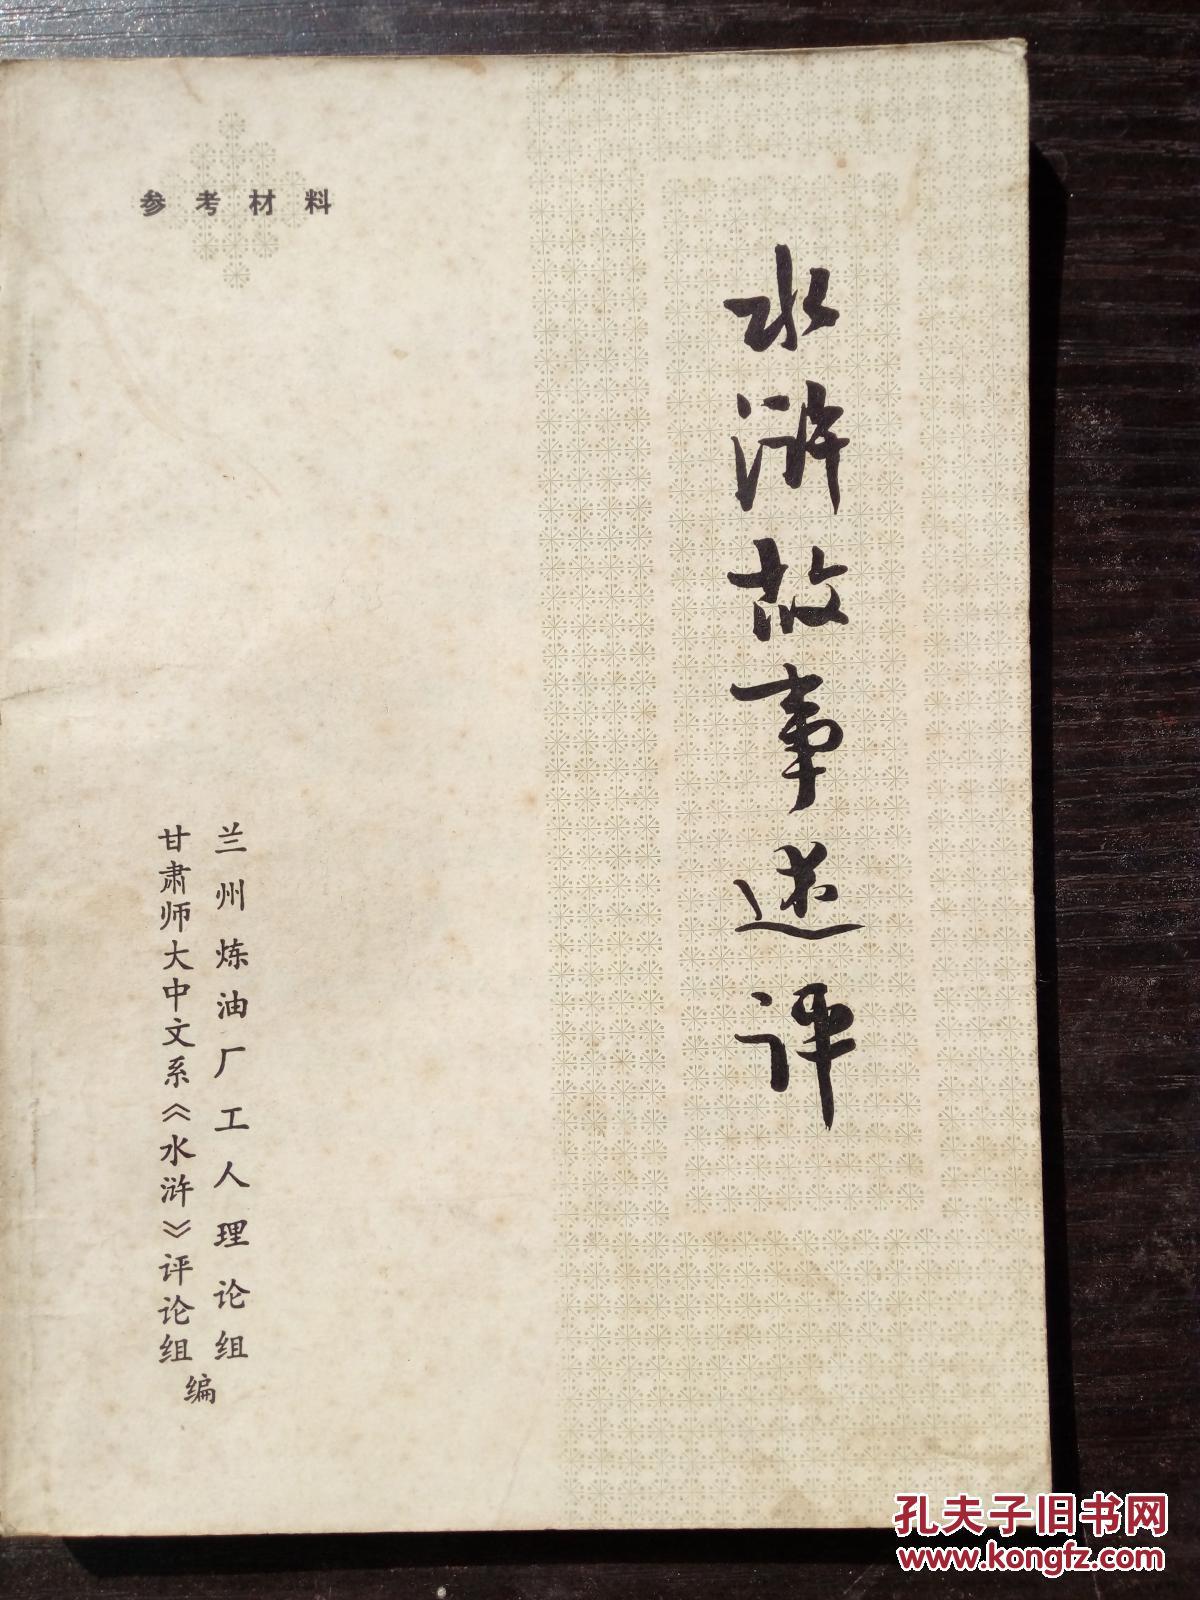 参考材料
水浒故事述评
兰州炼油厂工人理论组
甘肃师大中文系《水浒》评论组
编
孔夫子旧书网
www.kongfz.com